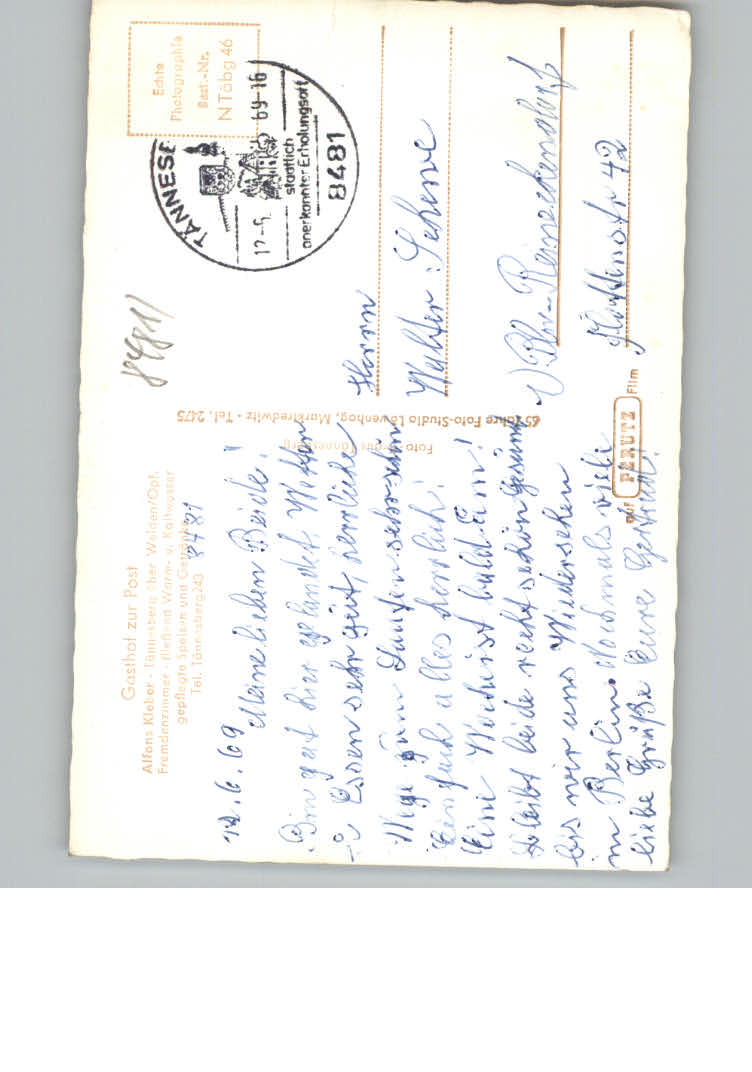 Gasthof zur Post
Alfons Kleber - Tännesberg über Weiden/Opf.
Fremdenzimmer - fließend Warm- u. Kaltwasser
gepflegte Speisen und Getränke
Tel. Tännesberg 243
8481
12.6.69
Meine lieben Beide!
Bin gut hier gelandet, Wetter
u. Essen sehr gut, herrliche
Wege zum Laufen sehr schön
Einfach alles herrlich!
Eine Woche ist bald um!
Bleibt beide recht schön gesund
bis wir uns Wiedersehen
in Berlin. Nochmals viele
liebe Grüße Eure Gertrud!
Foto Tännesberg
65 Jahre Foto-Studio Löwenhag, Marktredwitz - Tel. 2475
auf PERUTZ Film
8481
Echte
Photographie
Best.-Nr.
NTöbg 46
TÄNNESB
69-16
staatlich
anerkannter Erholungsort
8481
Herrn
Walter Schewe
1 Bln-Reinickendorf
42